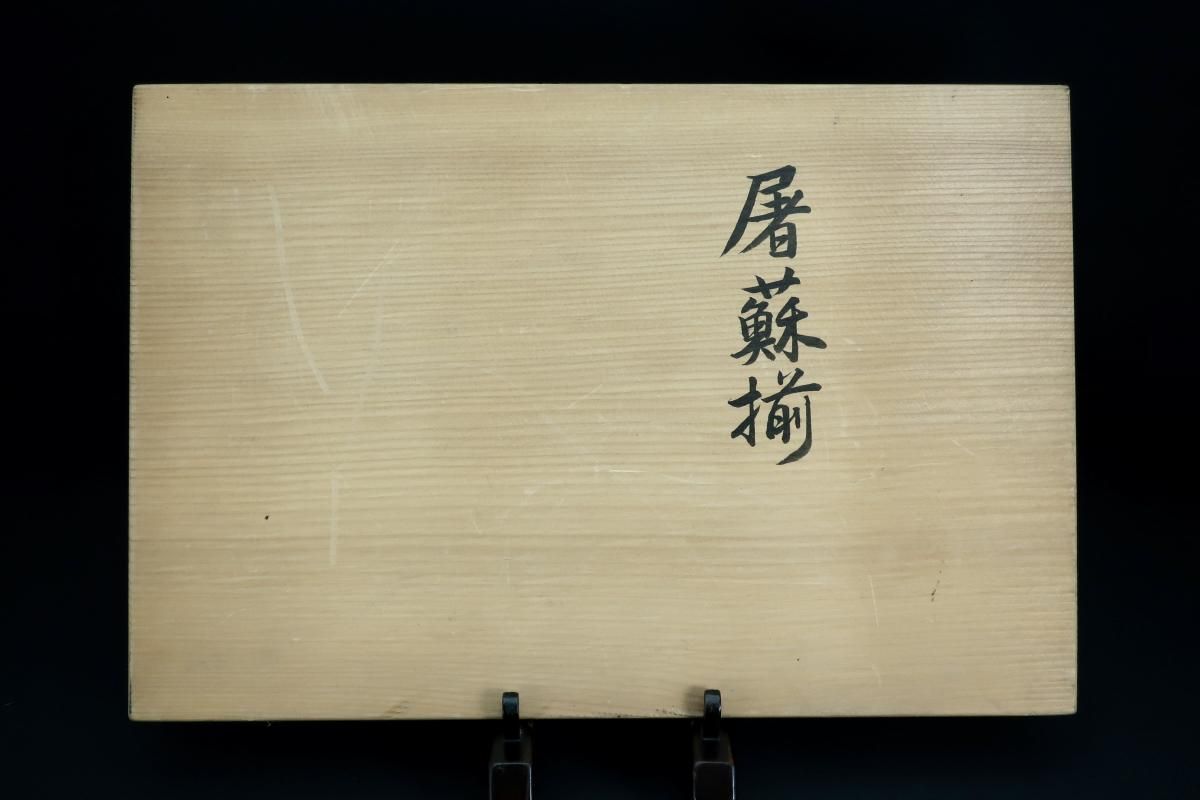 屠蘇揃